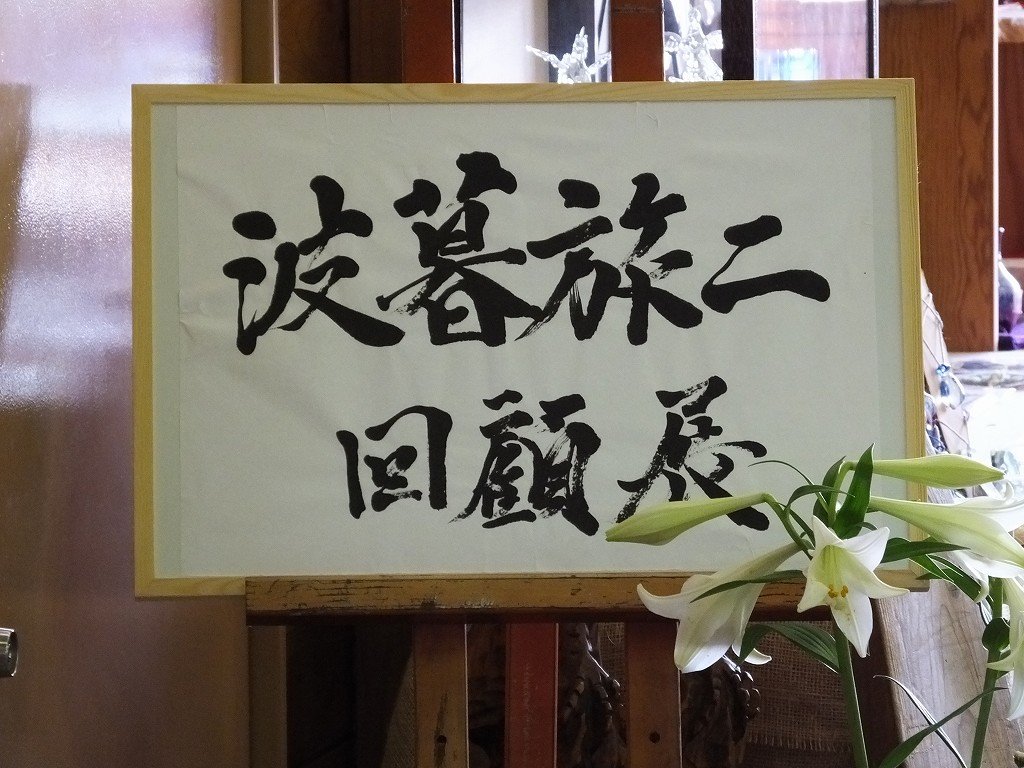 波暮旅二
回顧展